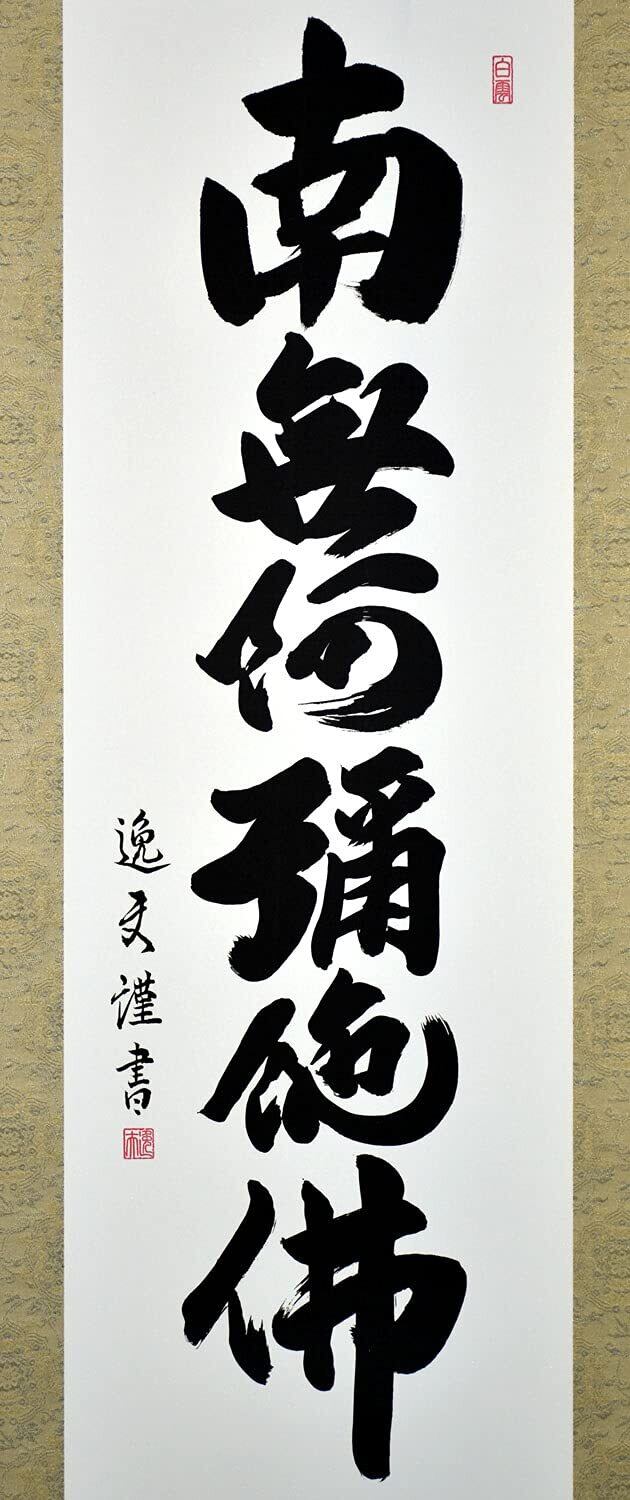 白雲
南無阿彌陀佛
逸謹書